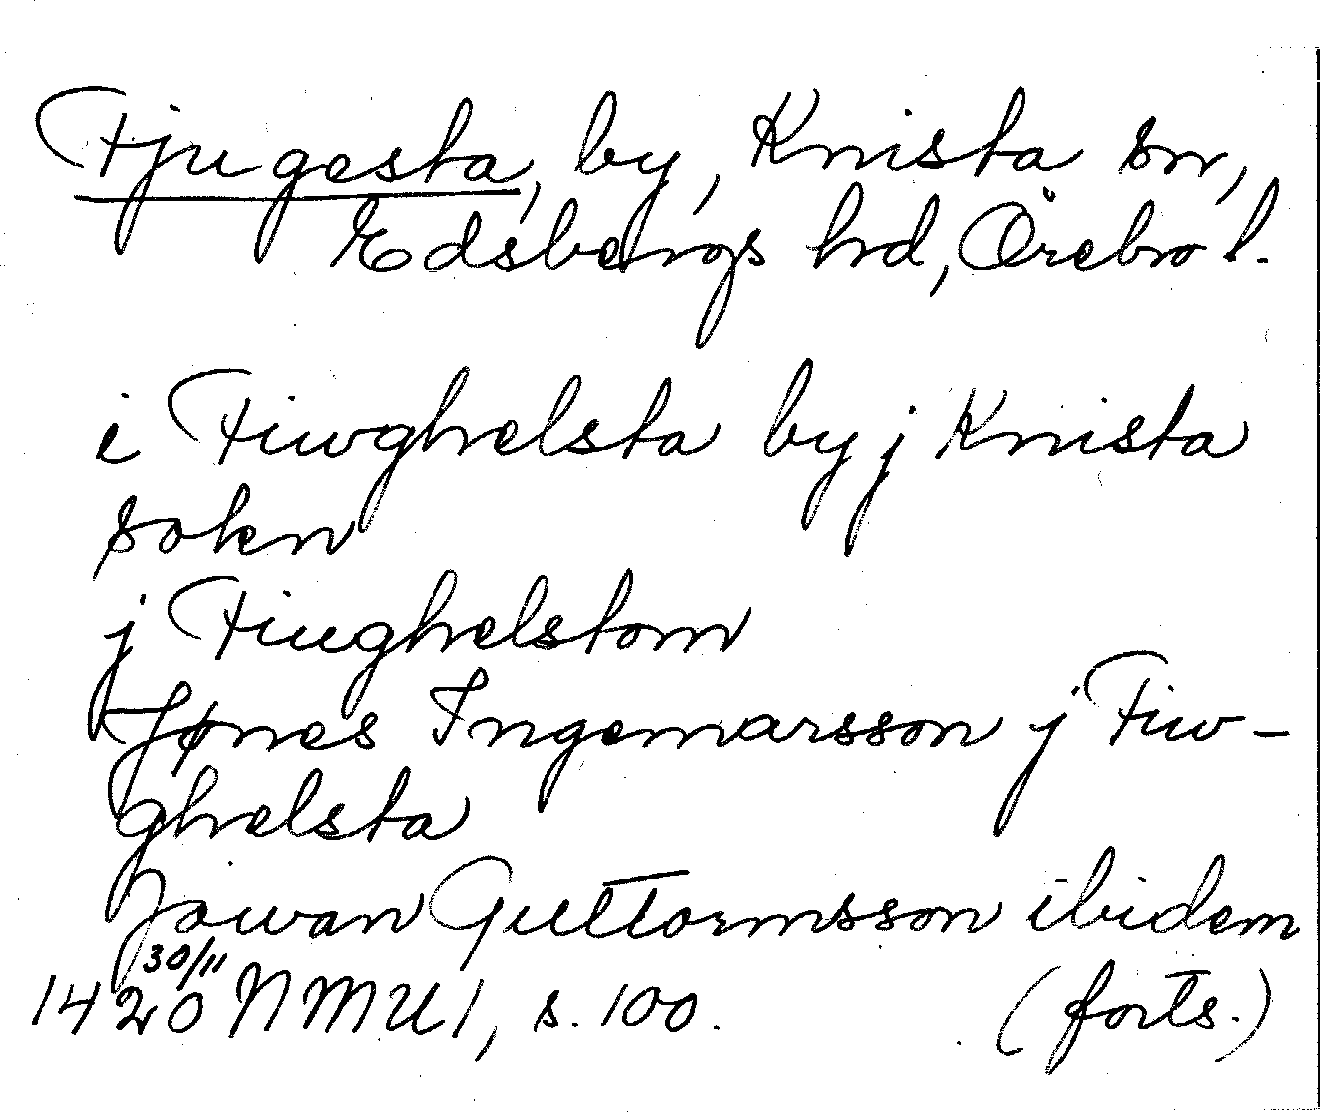 Fjugesta, by, Knista sn,
Edsbergs hrd, Örebro l.
i Fiwghelsta by j Knista
sokn
j Fiughelstom
Jønes Ingemarsson j Fiw-
ghelsta
Jowan Guttormsson ibidem
1420 30/11 NMU 1, s. 100. (forts.)